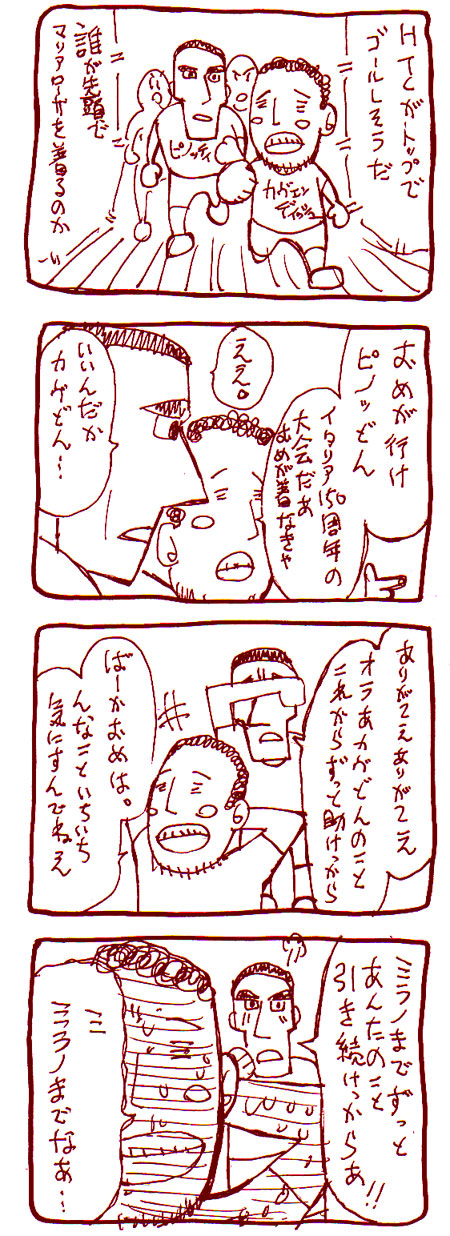 HTCがトップで
ゴールしそうだ
誰が先頭で
マリアローザを着るのか
ピノッティ
カヴェン
ディッシュ
おめが行け
ピノッどん
イタリア150周年の
大会だあ
おめが着なきゃ
ええ。
いいんだか
カヴどん…
ありがてえありがてえ
オラあカヴどんのこと
これからずっと助けっから
ばーかおめは。
んなこといちいち
気にすんでねえ
ミラノまでずっと
あんたのこと
引き続けっからあ!!
ミ
ミラノまでなあ…